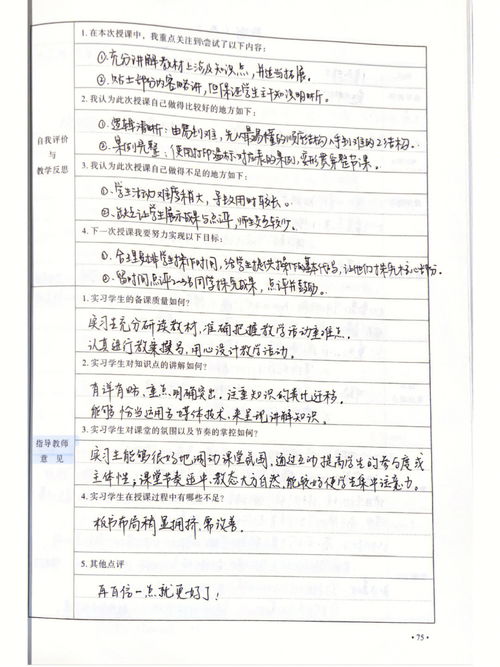 自我评价
与
教学反思
1. 在本次授课中，我重点关注到/尝试了以下内容：
①充分讲解教材上涉及知识点，并适当拓展。
②贴士部分内容略讲，但保证学生主干知识明晰。
2. 我认为此次授课自己做得比较好的地方如下：
①逻辑清晰：由易到难，先从最易懂的顺序结构入手到难的
②案例完整：使用打印温标对应表的案例，变形贯穿整节课。
3. 我认为此次授课自己做得不足的地方如下：
①学生活动难度稍大，导致用时较长。
②缺乏让学生展示成果与点评，师生交互较少。
4. 下一次授课我要努力实现以下目标：
①合理安排学生操作时间，给学生提供操作的基本代码，让他们探究核心部分。
②留时间点评2~3名同学探究成果，点评并鼓励。
指导教师
意 见
1. 实习学生的备课质量如何？
实习生充分研读教材，准确把握教学活动重难点。
认真进行教案撰写，用心设计教学活动。
2. 实习学生对知识点的讲解如何？
有详有略，重点明确突出，注重知识的类比迁移。
能够恰当运用多媒体技术，来呈现讲解知识。
3. 实习学生对课堂的氛围以及节奏的掌控如何？
实习生能够很好地调动课堂氛围，通过互动提高学生的参与度或
主体性；课堂节奏适中，教态大方自然，能较好使学生集中注意力。
4. 实习学生在授课过程中有哪些不足？
板书布局稍显拥挤，需改善。
5. 其他点评
再自信一点就更好了！
· 75 ·